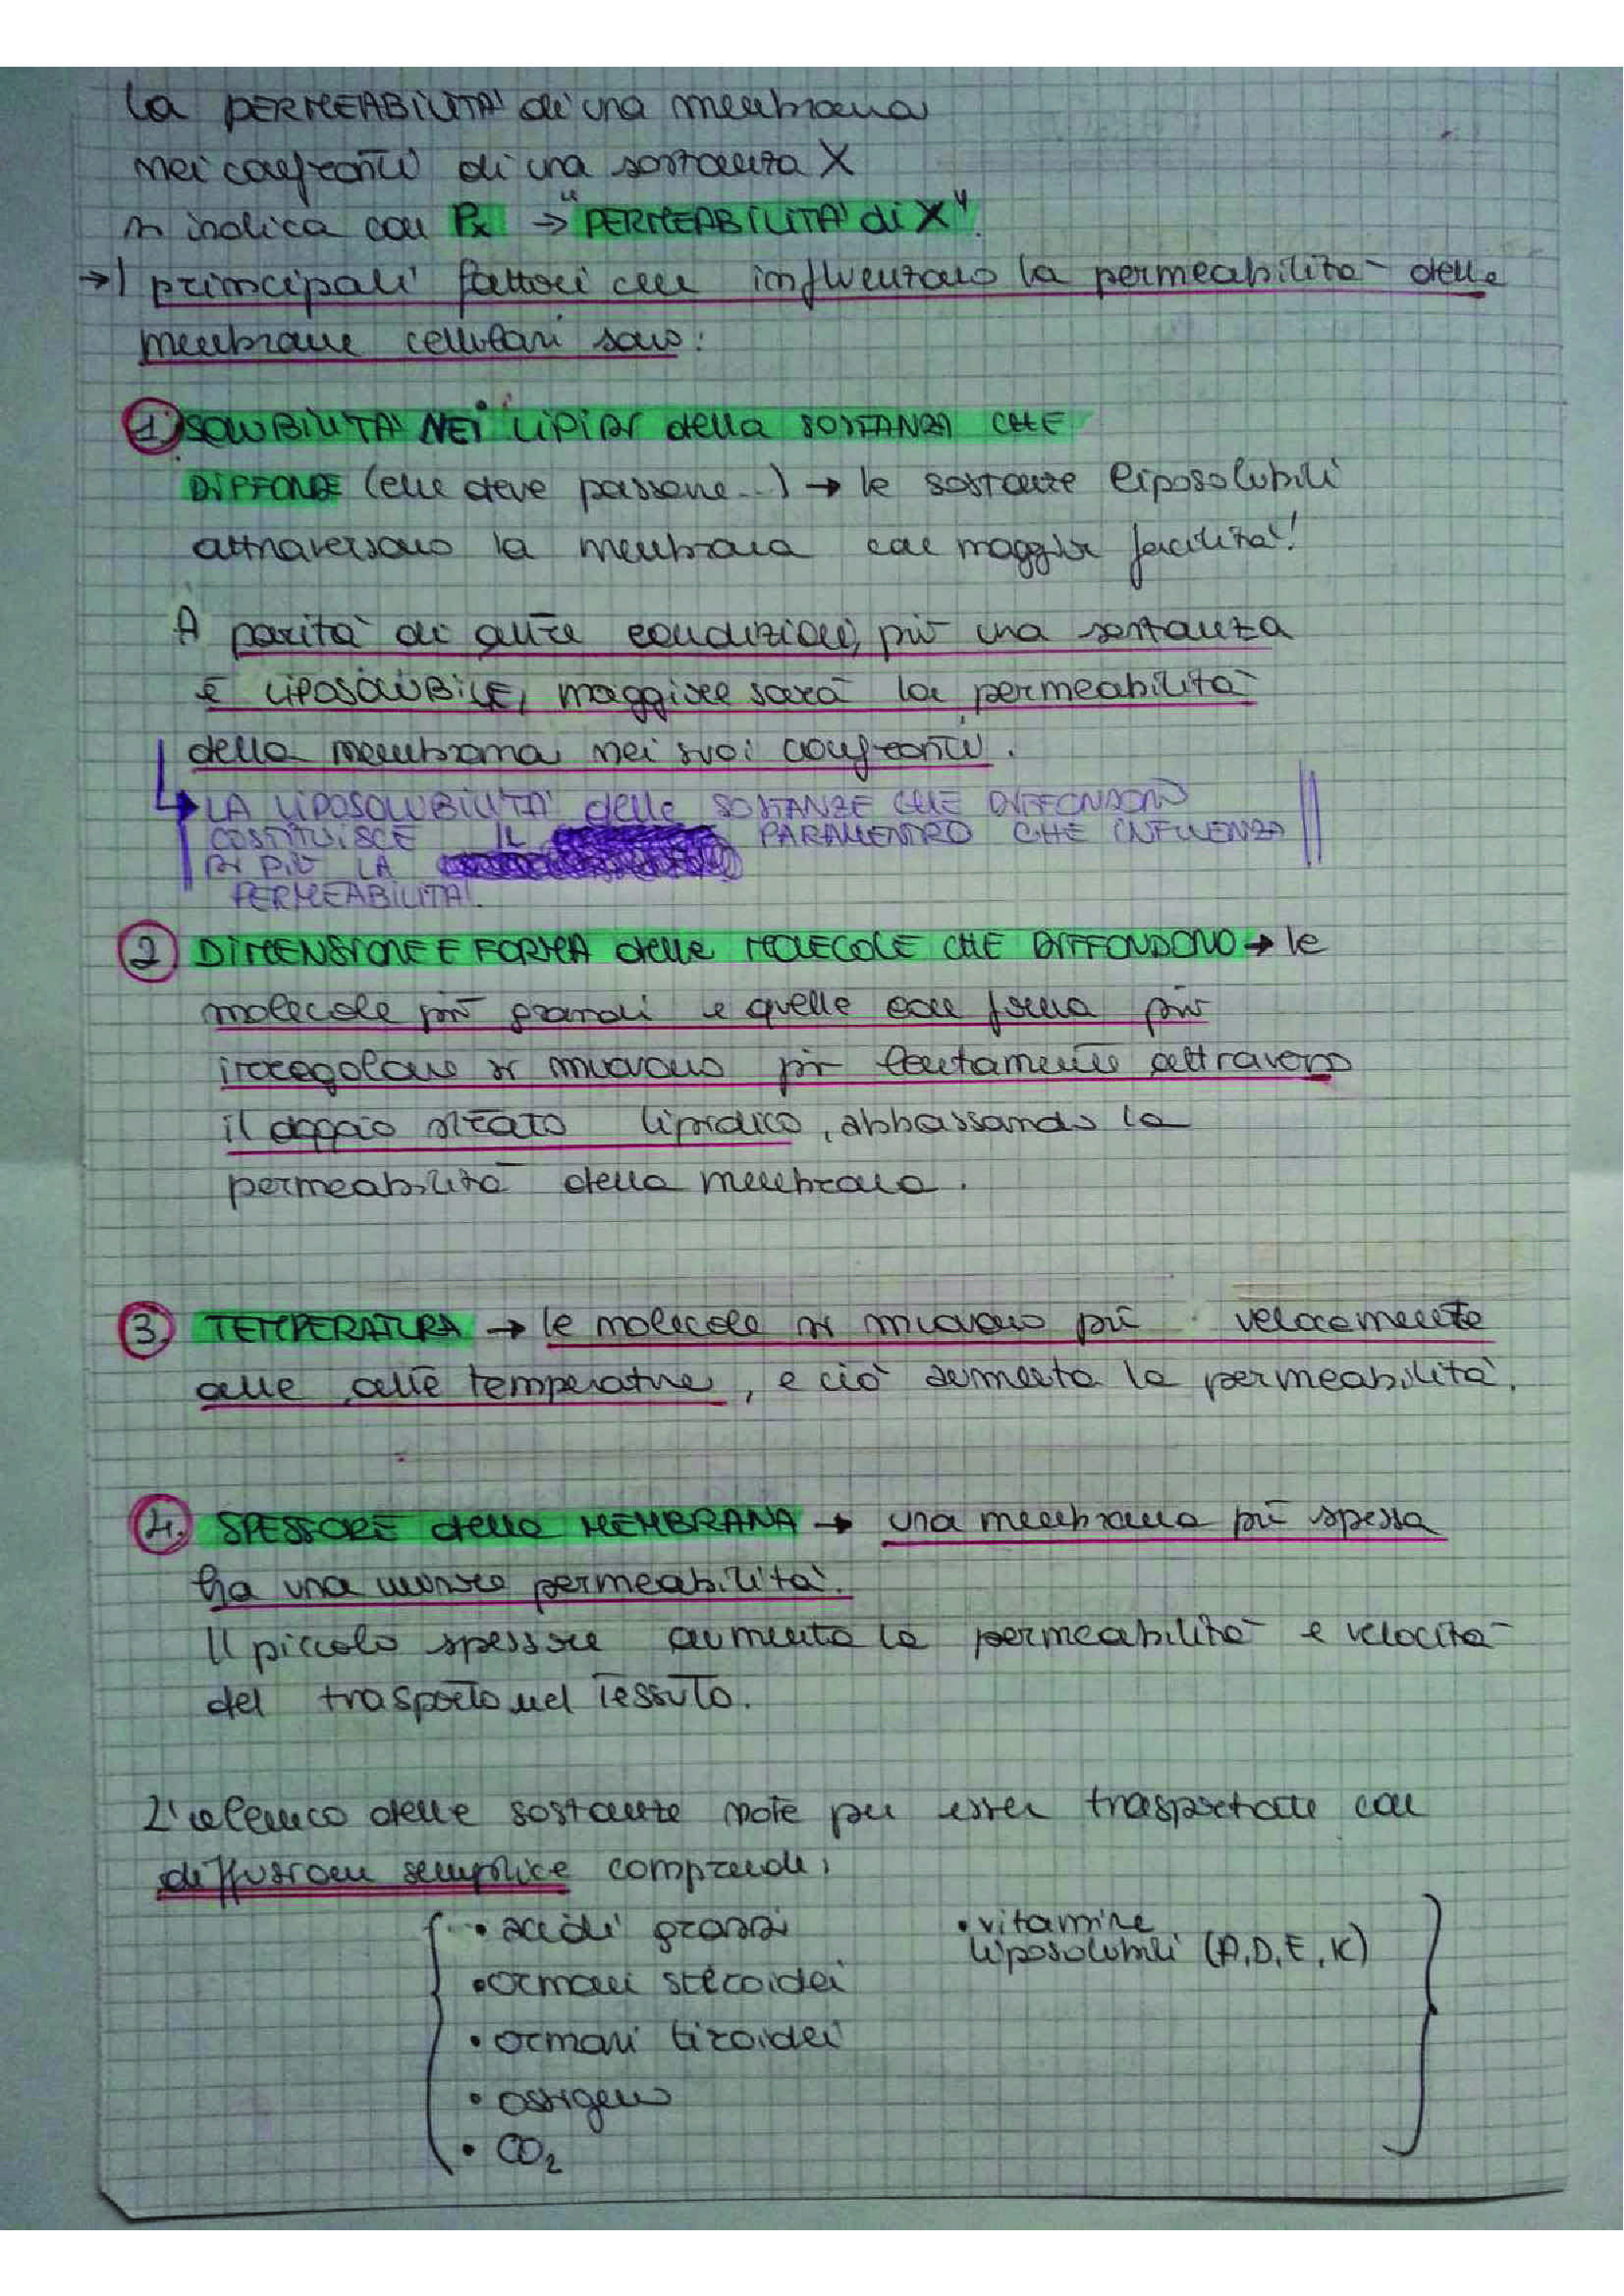 La PERMEABILITA' di una membrana
nei confronti di una sostanza X
si indica con Px → "PERMEABILITA' di X".
→ I principali fattori che influenzano la permeabilità delle
membrane cellulari sono:
1. SOLUBILITA' NEI LIPIDI della SOSTANZA CHE
DIFFONDE (che deve passare...) → le sostanze liposolubili
attraversano la membrana con maggior facilità!
A parità di altre condizioni, più una sostanza
è LIPOSOLUBILE, maggiore sarà la permeabilità
della membrana nei suoi confronti.
LA LIPOSOLUBILITA' delle SOSTANZE CHE DIFFONDONO
COSTITUISCE IL PARAMENTRO CHE INFLUENZA
DI PIÙ LA
PERMEABILITA'.
2 DIMENSIONE E FORMA delle MOLECOLE CHE DIFFONDONO → le
molecole più grandi e quelle con forma più
irregolare si muovono più lentamente attraverso
il doppio strato lipidico, abbassando la
permeabilità della membrana.
3. TEMPERATURA → le molecole si muovono più velocemente
alle alte temperature, e ciò aumenta la permeabilità.
4. SPESSORE della MEMBRANA → una membrana più spessa
ha una minore permeabilità.
Il piccolo spessore aumenta la permeabilità e velocità
del trasporto nel tessuto.
L'elenco delle sostanze note per esser trasportate con
diffusione semplice comprende:
• acidi grassi • vitamine
liposolubili (A, D, E, K)
• ormoni steroidei
• ormoni tiroidei
• ossigeno
• CO₂